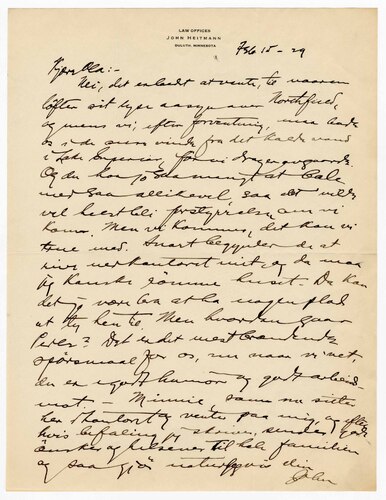 LAW OFFICES
JOHN HEITMANN
DULUTH, MINNESOTA
Feb 15 - 29
Kjere Ola:-
Nei, det er bedst at vente, til vaaren
løfter sit øye over Northfield,
og mens vi, efter forventning, maa bade
os i de sure vinde fra det kalde vand
i Lake Superior, før vi drager
Og du har jo saa meget at
med saa allikevel, saa det vilde
vel helst bli forstyrrelse, om vi
kom. Men vi kommer, det kan vi
true med. Snart begynder de at
rive ned kontoret mit, og da maa
jeg kanske rømme huset. Da kan
det jo være bra at ha nogen plads
at fly hen te. Men hvordan gaar
Det er det mest brændende
spørsmaal for os, nu naar vi vet,
du er i godt humør og godt arbeid
mot. - Minnie, som nu sitter
her i kontoret og venter paa mig, og efter
hvis befaling jeg skriver, sender gode
ønsker og hilsener til hele familien
og saa gjør naturligvis din
John